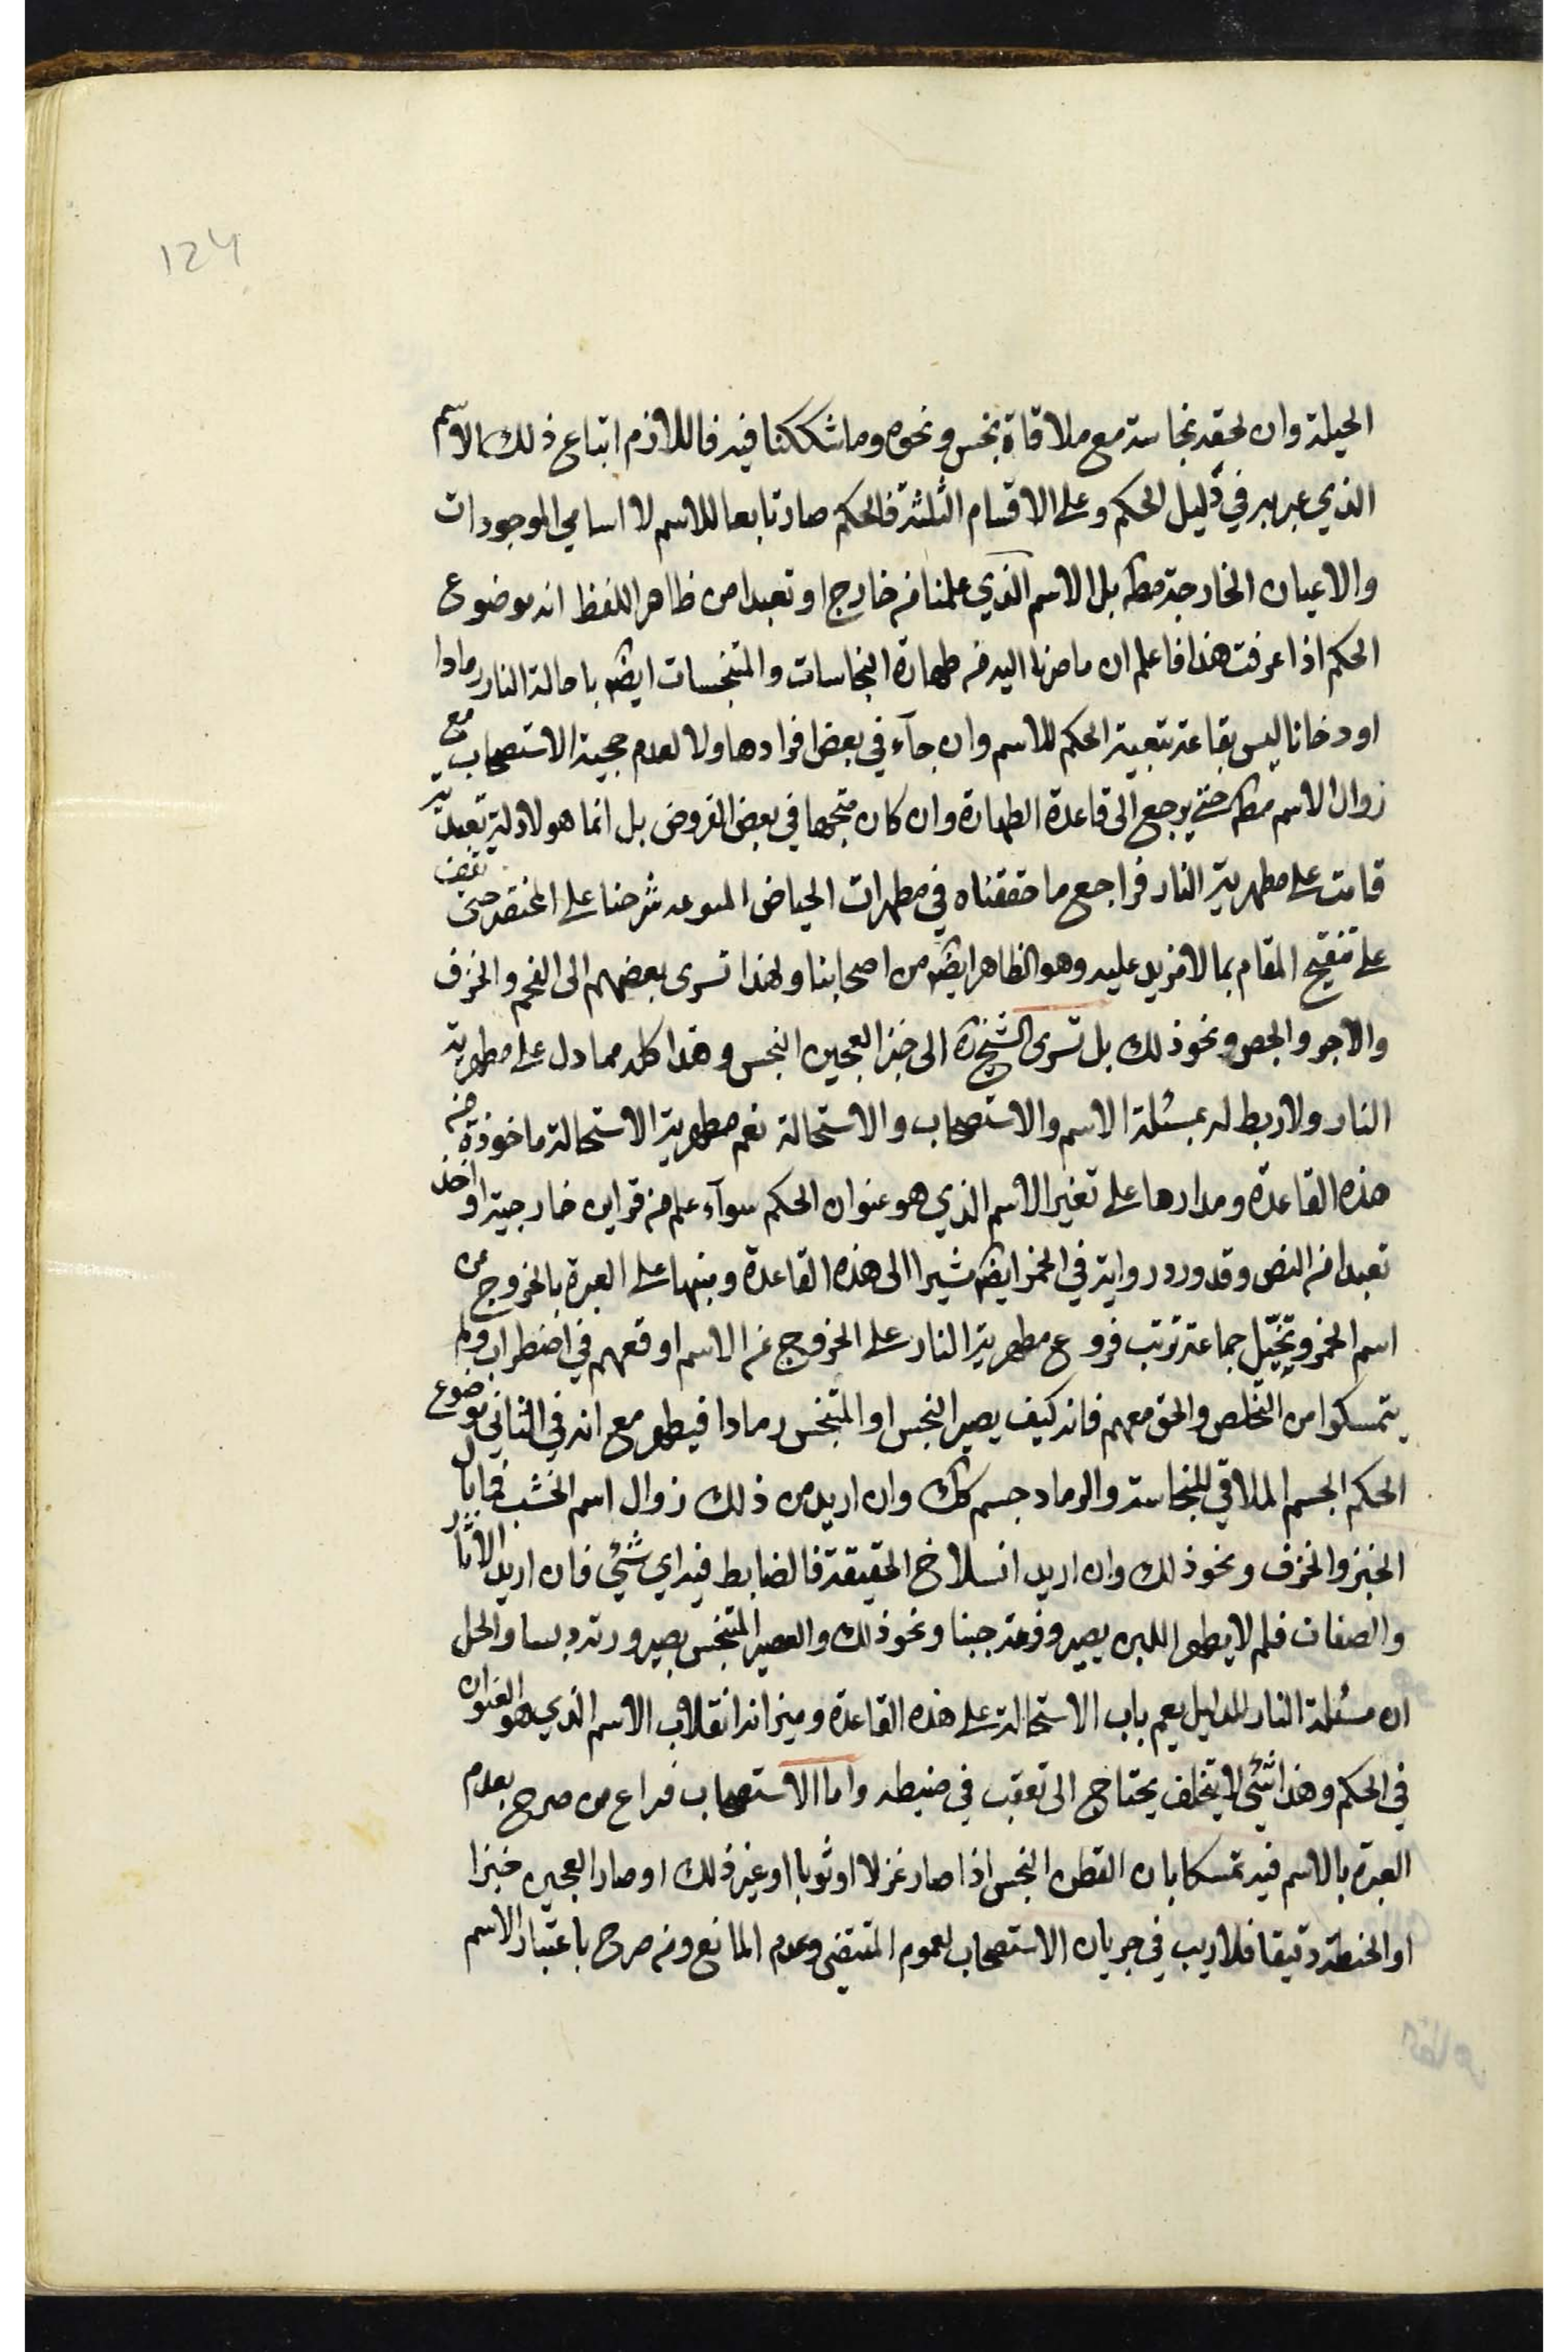 124
الحيلة وان لحقه نجاسة مع ملاقاة نجس ونحوه وما شككنا فيه فاللازم اتباع ذلك الاسم
الذي عبر به في دليل الحكم وعلى الاقسام الثلثة فالحكم صار تابعا للاسم لا اسامي الموجودات
والاعيان الخارجة مطه بل الاسم الذي علمنا من خارج او تعبدا من ظاهر اللفظ انه موضوع
الحكم اذا عرفت هذا فاعلم ان ما صرنا اليه من طهارة النجاسات والمتنجسات ايضه باحالة النار رمادا
او دخانا ليس بقاعدة تبعية الحكم للاسم وان جآء في بعض افرادها ولا لعدم حجية الاستصحاب مع
زوال الاسم مطه حتى يرجع الى قاعدة الطهارة وان كان متجها في بعض الفروض بل انما هو لادلة تعبدية
قامت على مطهرية النار فراجع ما حققناه في مطهرات الحياض شرحنا على المختصر حتى تقف
على تنقيح المقام بما لا مزيد عليه وهو الظاهر ايضه من اصحابنا ولهذا تسرى بعضهم الى الفحم والخزف
والاجر والجص ونحو ذلك بل تسرى الشيخ ره الى خبز العجين النجس وهذا كله مما دل على مطهرية
النار ولا ربط له بمسئلة الاسم والاستصحاب والاستحالة نعم مطهرية الاستحالة ماخوذة من
هذه القاعدة ومدارها على تغير الاسم الذي هو عنوان الحكم سوآء علم من قراين خارجية او اخذ
تعبدا من النص وقد ورد رواية في الخمر ايضه مشيرا الى هذه القاعدة ومنبها على العبرة بالخروج عن
اسم الخمر وتخيّل جماعة ترتب فروع مطهرية النار على الخروج عن الاسم اوقعهم في اضطراب ولم
يتمسكوا من التخلص والحق معهم فانه كيف يصير النجس او المتنجس رمادا فيطهر مع انه في الثاني موضوع
الحكم الجسم الملاقي للنجاسة والرماد جسم كك وان اريد من ذلك زوال اسم الخشب فما بال
الخبز والخزف ونحو ذلك وان اريد انسلاخ الحقيقة فالضابط فيه اي شئي فان اريد الاثار
والصفات فلم لا يطهر اللبن بصيرورته جبنا ونحو ذلك والعصير المتنجس بصيرورته دبسا والحل
ان مسئلة النار للدليل يعم باب الاستحالة على هذه القاعدة وميزانه انقلاب الاسم الذي هو العنوان
في الحكم وهذا شئي لا يتخلف يحتاج الى تعقب في ضبطه واما الاستصحاب فراع من صرح بعدم
العبرة بالاسم فيه تمسكا بان القطن النجس اذا صار غزلا او ثوبا او غير ذلك او صار العجين خبزا
او الحنطة دقيقا فلا ريب في جريان الاستصحاب لعموم المقتضى وعدم المانع ومن صرح باعتبار الاسم